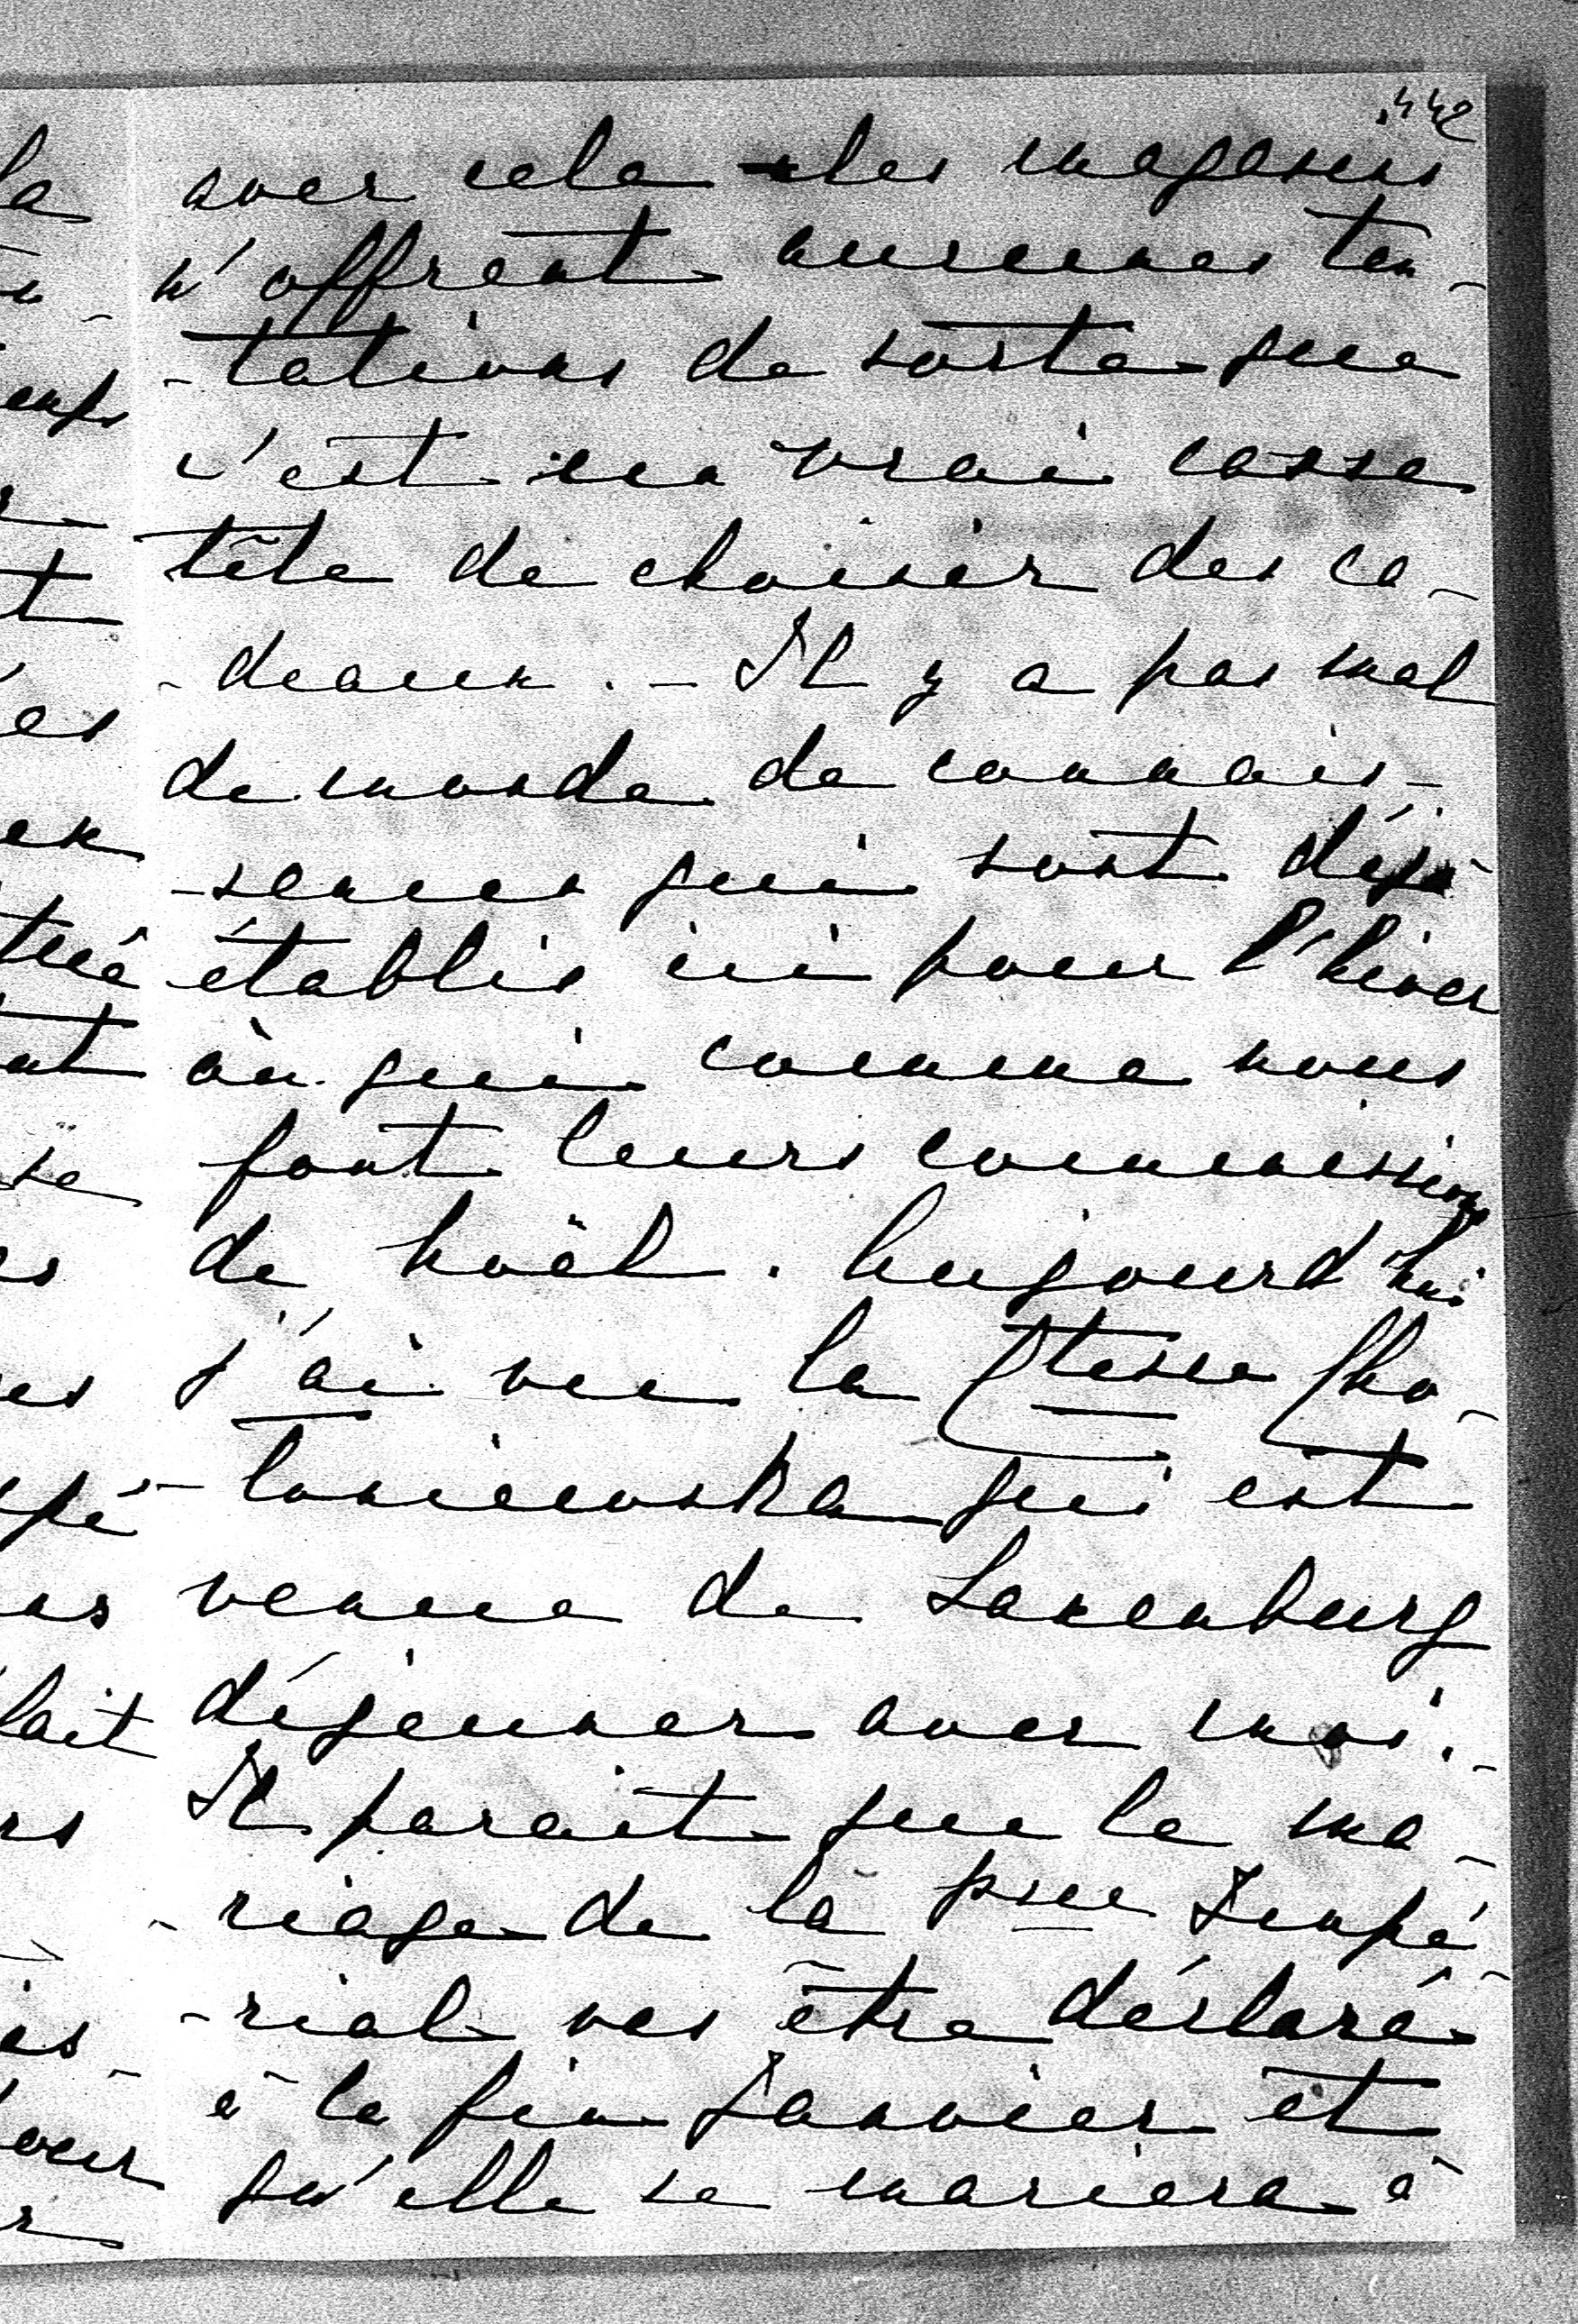 442
avec cela les magasins
n'offrent aucunes ten-
-tations de sorte que
c'est un vrai casse
tête de choisir des ca-
-deaux. - Il y a pas mal
de monde de connais-
-sances qui sont déjà
établis ici pour l'hiver
ou qui comme nous
font leurs commissions
de Noël. Aujourd'hui
j'ai vu la Ctesse Cho-
-loniewska qui est
venue de Laxenburg
déjeuner avec moi.
Il parait que le ma-
-riage de la psse Impé-
-rial vas être déclaré
à la fin Janvier et
qu'elle se mariera à